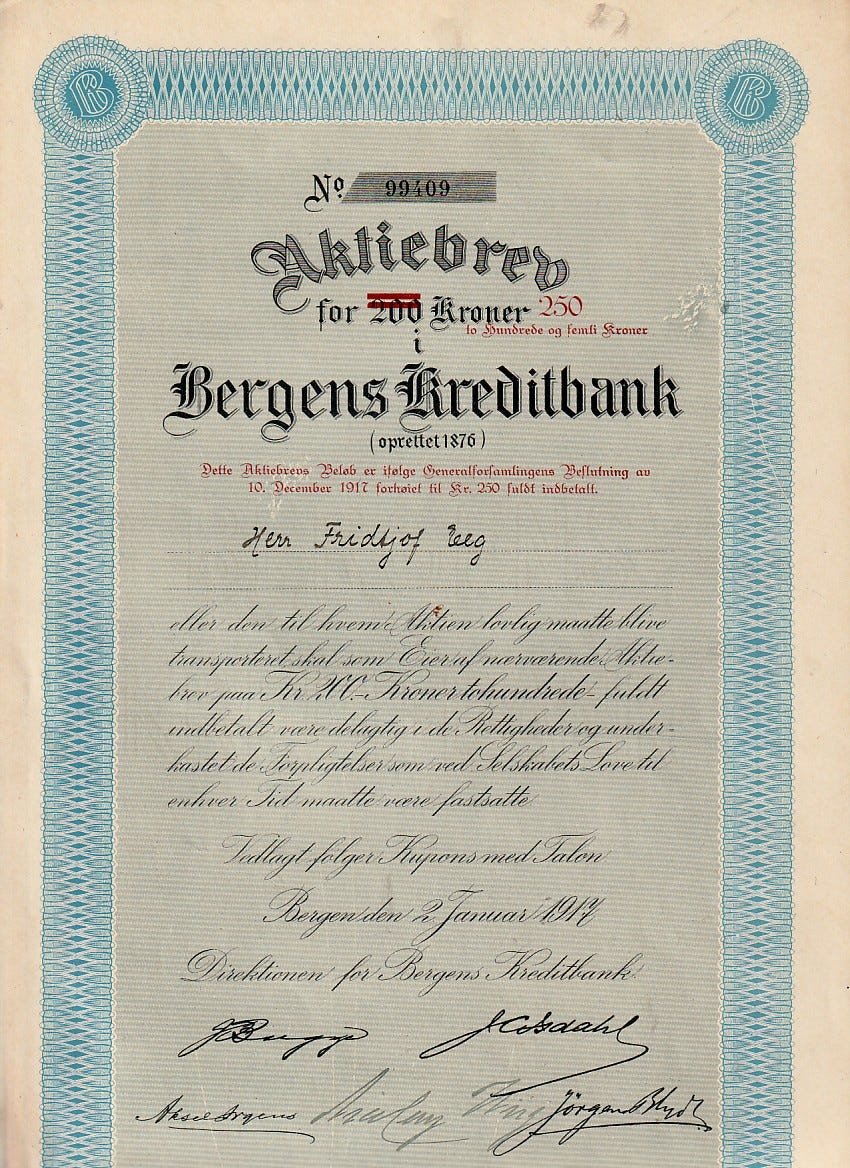 B B
No. 99409
Aktiebrev
for 200 Kroner 250
to Hundrede og femti Kroner
i
Bergens Kreditbank
(oprettet 1876)
Dette Aktiebrevs Beløb er ifølge Generalforsamlingens Beslutning av
10. December 1917 forhøiet til Kr. 250 fuldt indbetalt.
Herr Fridtjof Eeg
eller den til hvem Aktien lovlig maatte blive
transporteret skal som Eier af nærværende Aktie-
brev paa Kr. 200.- Kroner tohundrede - fuldt
indbetalt være delagtig i de Rettigheder og under-
kastet de Forpligtelser som ved Selskabets Love til
enhver Tid maatte være fastsatte
Vedlagt følger Kupons med Talon
Bergen den 2 Januar 1917
Direktionen for Bergens Kreditbank.
Jørgen Blydt